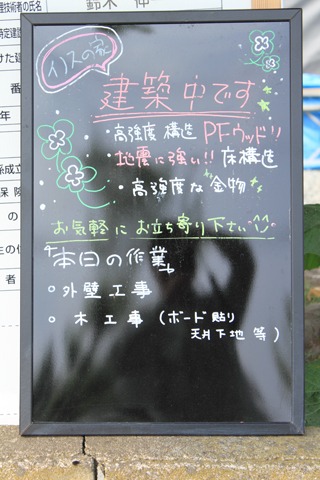 技術者の氏名
鈴木 伸一
イノスの家
建築中です
・高強度構造 PFウッド!!
・地震に強い!! 床構造
・高強度な金物
お気軽にお立ち寄り下さい^^
本日の作業
○ 外壁工事
○ 木工事(ボード貼り
天井下地 等)
番
年
保険
の
者